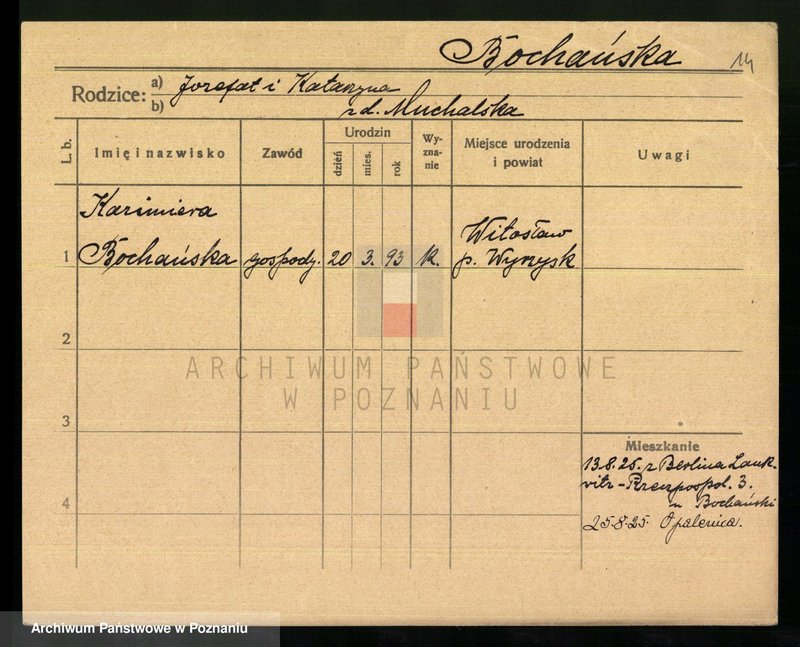 Bochańska 14
Rodzice: a) Jozefat i Katarzyna
b) z d. Muchalska
L. b. Imię i nazwisko Zawód Urodzin dzień mies. rok Wyznanie Miejsce urodzenia i powiat Uwagi
Kazimiera
1 Bochańska gospody. 20 3. 93 k. Witosław p. Wyrzysk
2
ARCHIWUM PAŃSTWOWE
W POZNANIU
3
Mieszkanie
13.8.25. z Berlina Lank-
witz - Rzeczpospol. 3.
u Bochański
4
25.8.25. Opalenica.
Archiwum Państwowe w Poznaniu